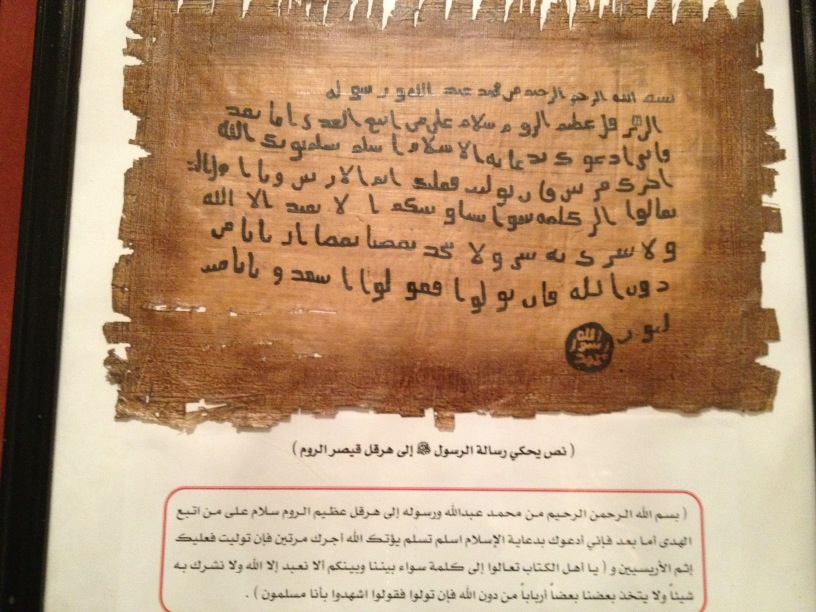 بسم الله الرحمن الرحيم من محمد عبد الله ورسوله
الى هرقل عظيم الروم سلام على من اتبع الهدى اما بعد
فانى ادعوك بدعاية الاسلام اسلم تسلم يوتك الله
اجرك مرتين فان توليت فعليك اثم الاريسين ويا اهل الكتاب
تعالوا الى كلمة سوا بيننا وبينكم ا لا نعبد الا الله
ولا نشرك به شى ولا يتخذ بعضنا بعضا اربابا من
دون الله فان تولوا فقولوا اشهدوا بانا مس
لمون
الله
رسول
محمد
( نص يحكي رسالة الرسول ﷺ إلى هرقل قيصر الروم )
( بسم الله الرحمن الرحيم من محمد عبدالله ورسوله إلى هرقل عظيم الروم سلام على من اتبع
الهدى أما بعد فإني أدعوك بدعاية الإسلام اسلم تسلم يؤتك الله أجرك مرتين فإن توليت فعليك
إثم الأريسيين و ( يا أهل الكتاب تعالوا إلى كلمة سواء بيننا وبينكم ألا نعبد إلا الله ولا نشرك به
شيئاً ولا يتخذ بعضنا بعضاً أرباباً من دون الله فإن تولوا فقولوا اشهدوا بأنا مسلمون ) .